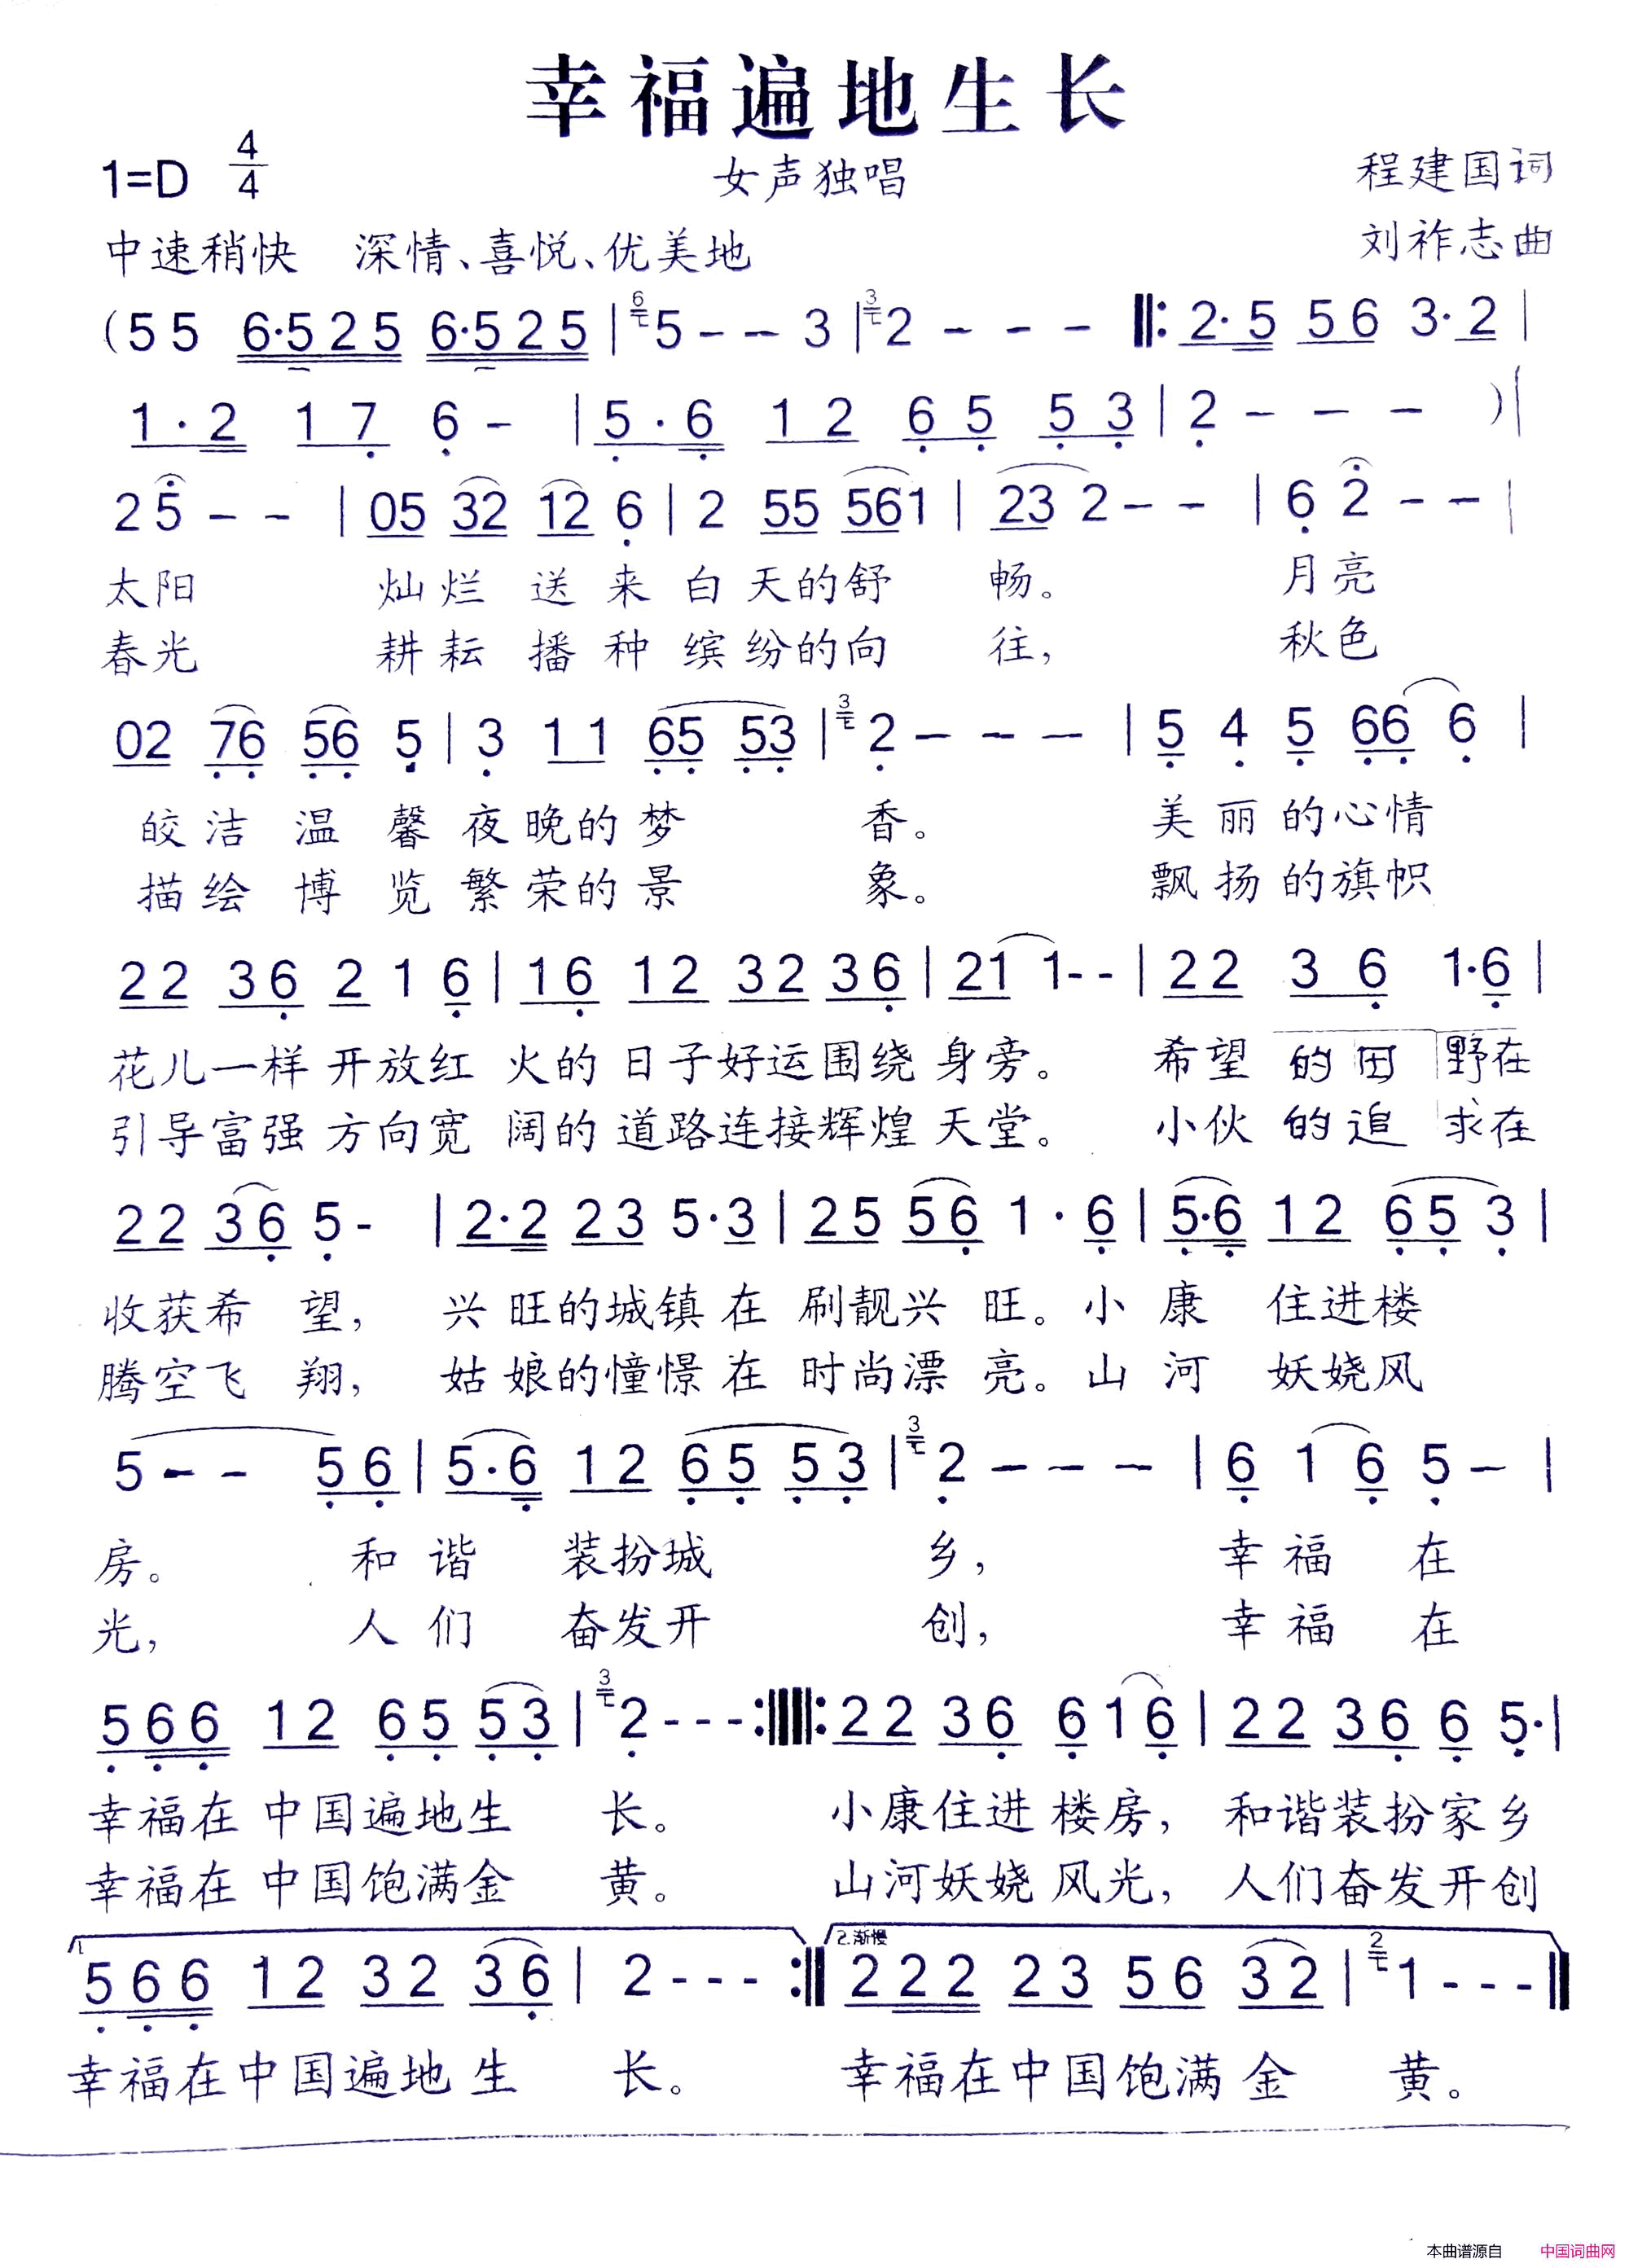 幸福遍地生长
1=D 4/4 女声独唱 程建国词
中速稍快 深情、喜悦、优美地 刘祚志曲
(5 5 6·5 2 5 6·5 2 5 | 6 5 - - 3 | 3 2 - - - ‖: 2· 5 5 6 3· 2 |
1 · 2 1 7 6 - | 5 · 6 1 2 6 5 5 3 | 2 - - - )|
2 5 - - | 05 32 12 6 | 2 55 561 | 23 2 - - | 6 2 - - |
太阳 灿烂 送来白天的舒 畅。 月亮
春光 耕耘 播种缤纷的向 往, 秋色
02 76 56 5 | 3 11 65 53 | 3 2 - - - | 5 4 5 66 6 |
皎洁 温馨夜晚的梦 香。 美丽的心情
描绘 博览繁荣的景 象。 飘扬的旗帜
22 36 2 1 6 | 16 12 32 36 | 21 1 - - | 22 3 6 1·6 |
花儿一样开放红 火的日子好运围绕身旁。 希望的田野在
引导富强方向宽 阔的道路连接辉煌天堂。 小伙的追求在
22 36 5 - | 2·2 23 5·3 | 25 56 1 · 6 | 5·6 12 65 3 |
收获希望, 兴旺的城镇在刷靓兴旺。小康 住进楼
腾空飞翔, 姑娘的憧憬在时尚漂亮。山河 妖娆风
5 - - 56 | 5·6 12 65 53 | 3 2 - - - | 6 1 6 5 - |
房。 和谐 装扮城 乡, 幸福 在
光, 人们 奋发开 创, 幸福 在
566 12 65 53 | 3 2 - - - :‖: 22 36 6 1 6 | 22 36 6 5· |
幸福在中国遍地生 长。 小康住进楼房, 和谐装扮家乡
幸福在中国饱满金 黄。 山河妖娆风光, 人们奋发开创
1. 2.渐慢
566 12 32 36 | 2 - - - :‖ 222 23 56 32 | 2 1 - - - ‖
幸福在中国遍地生 长。 幸福在中国饱满金 黄。
本曲谱源自 中国词曲网